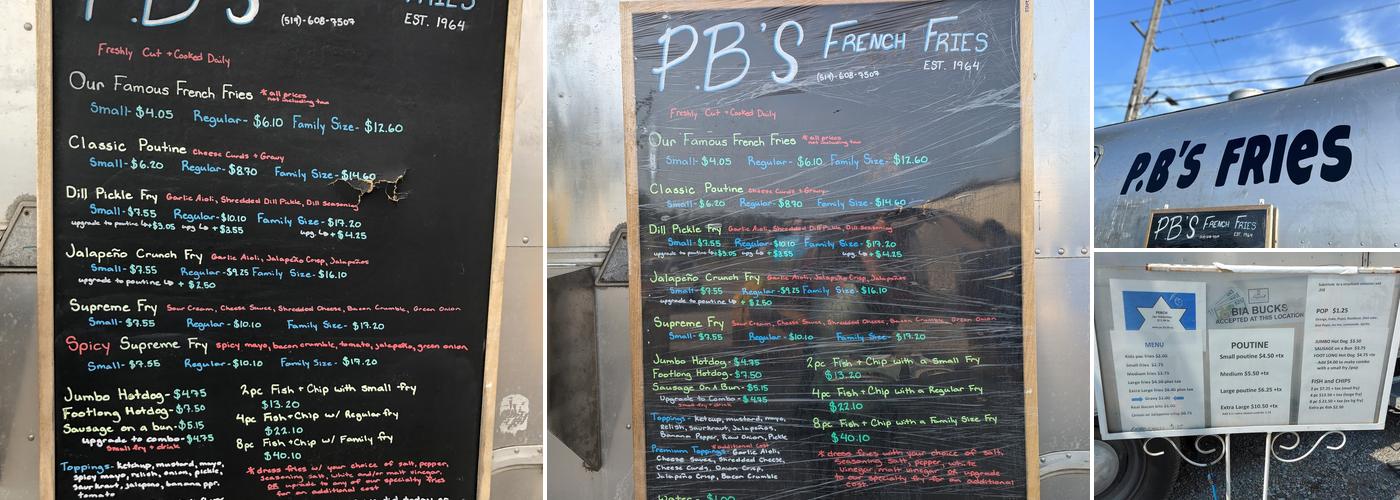 P.B'S FRIES
(519)-608-7507 EST. 1964
Freshly Cut + Cooked Daily
Our Famous French Fries *all prices not including tax
Small- $4.05 Regular- $6.10 Family Size- $12.60
Classic Poutine Cheese Curds + Gravy
Small- $6.20 Regular- $8.70 Family Size- $14.60
Dill Pickle Fry Garlic Aioli, Shredded Dill Pickle, Dill Seasoning
Small- $7.55 Regular- $10.10 Family Size- $17.20
upgrade to poutine Up + $3.05 upg. Up + $3.55 upg. Up + $4.25
Jalapeño Crunch Fry Garlic Aioli, Jalapeño Crisp, Jalapeños
Small- $7.55 Regular- $9.25 Family Size- $16.10
upgrade to poutine Up + $2.50
Supreme Fry Sour Cream, Cheese Sauce, Shredded Cheese, Bacon Crumble, Green Onion
Small- $7.55 Regular- $10.10 Family Size- $17.20
Spicy Supreme Fry spicy mayo, bacon crumble, tomato, jalapeño, green onion
Small- $7.55 Regular- $10.10 Family Size- $17.20
Jumbo Hotdog- $4.75
Footlong Hotdog- $7.50
Sausage on a bun- $5.15
upgrade to combo- $4.75
Small fry + drink
Toppings- ketchup, mustard, mayo,
spicy mayo, relish, onion, pickle,
saurkraut, jalepano, banana ppr.
tomato
2pc Fish + Chip with small fry
$13.20
4pc Fish + Chip w/ Regular fry
$22.10
8pc Fish + Chip w/ Family fry
$40.10
*dress fries w/ your choice of salt, pepper,
seasoning salt, white and/or malt vinegar,
or upgrade to any of our specialty fries
for an additional cost
P.B'S FRENCH FRIES
(519)-608-7507 EST. 1964
Freshly Cut + Cooked Daily
Our Famous French Fries *all prices not including tax
Small- $4.05 Regular- $6.10 Family Size- $12.60
Classic Poutine Cheese Curds + Gravy
Small- $6.20 Regular- $8.70 Family Size- $14.60
Dill Pickle Fry Garlic Aioli, Shredded Dill Pickle, Dill Seasoning
Small- $7.55 Regular- $10.10 Family Size- $17.20
upgrade to poutine Up + $3.05 upg. Up + $3.55 upg. Up + $4.25
Jalapeño Crunch Fry Garlic Aioli, Jalapeño Crisp, Jalapeños
Small- $7.55 Regular- $9.25 Family Size- $16.10
upgrade to poutine Up + $2.50
Supreme Fry Sour Cream, Cheese Sauce, Shredded Cheese, Bacon Crumble, Green Onion
Small- $7.55 Regular- $10.10 Family Size- $17.20
Jumbo Hotdog- $4.75
Footlong Hotdog- $7.50
Sausage On A Bun- $5.15
Upgrade to Combo- $4.75
small fry + drink
Toppings- ketchup, mustard, mayo,
relish, saurkraut, Jalapeños,
Banana Pepper, Raw Onion, Pickle
*additional cost
Premium Toppings- Garlic Aioli,
Cheese Sauce, Shredded Cheese,
Cheese Curds, Onion Crisp,
Jalapeño Crisp, Bacon Crumble
Water- $1.00
2pc Fish + Chip with a Small Fry
$13.20
4pc Fish + Chip with a Regular Fry
$22.10
8pc Fish + Chip with a Family Size Fry
$40.10
*dress fries with your choice of salt,
seasoning salt, pepper, white
vinegar, malt vinegar or upgrade
to our specialty fry for an additional
cost.
P.B'S FRIES
P.B'S FRENCH FRIES
EST. 1964
BIA BUCKS
ACCEPTED AT THIS LOCATION
MENU
Kids fries $2.00
Small fries $2.75
Medium fries $3.75
Large fries $4.50 plus tax
POUTINE
Small poutine $4.50 +tx
Medium $5.50 +tx
Large poutine $6.25 +tx
Extra Large $10.50 +tx
POP $1.25
JUMBO Hot Dog $3.50
SAUSAGE on a Bun $3.75
FOOT LONG Hot Dog $4.75 +tx
FISH and CHIPS